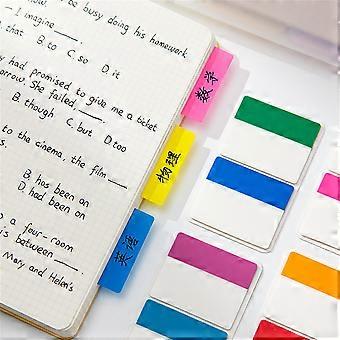 be busy doing his homework
I imagine
that B. to C. so D. it
had promised to give me a ticket
She failed
B. though C. but D. too
to the cinema, the film
B. has been an
D. had been on
a four-room
is between
Mary and Helen's
数学
物理
英语